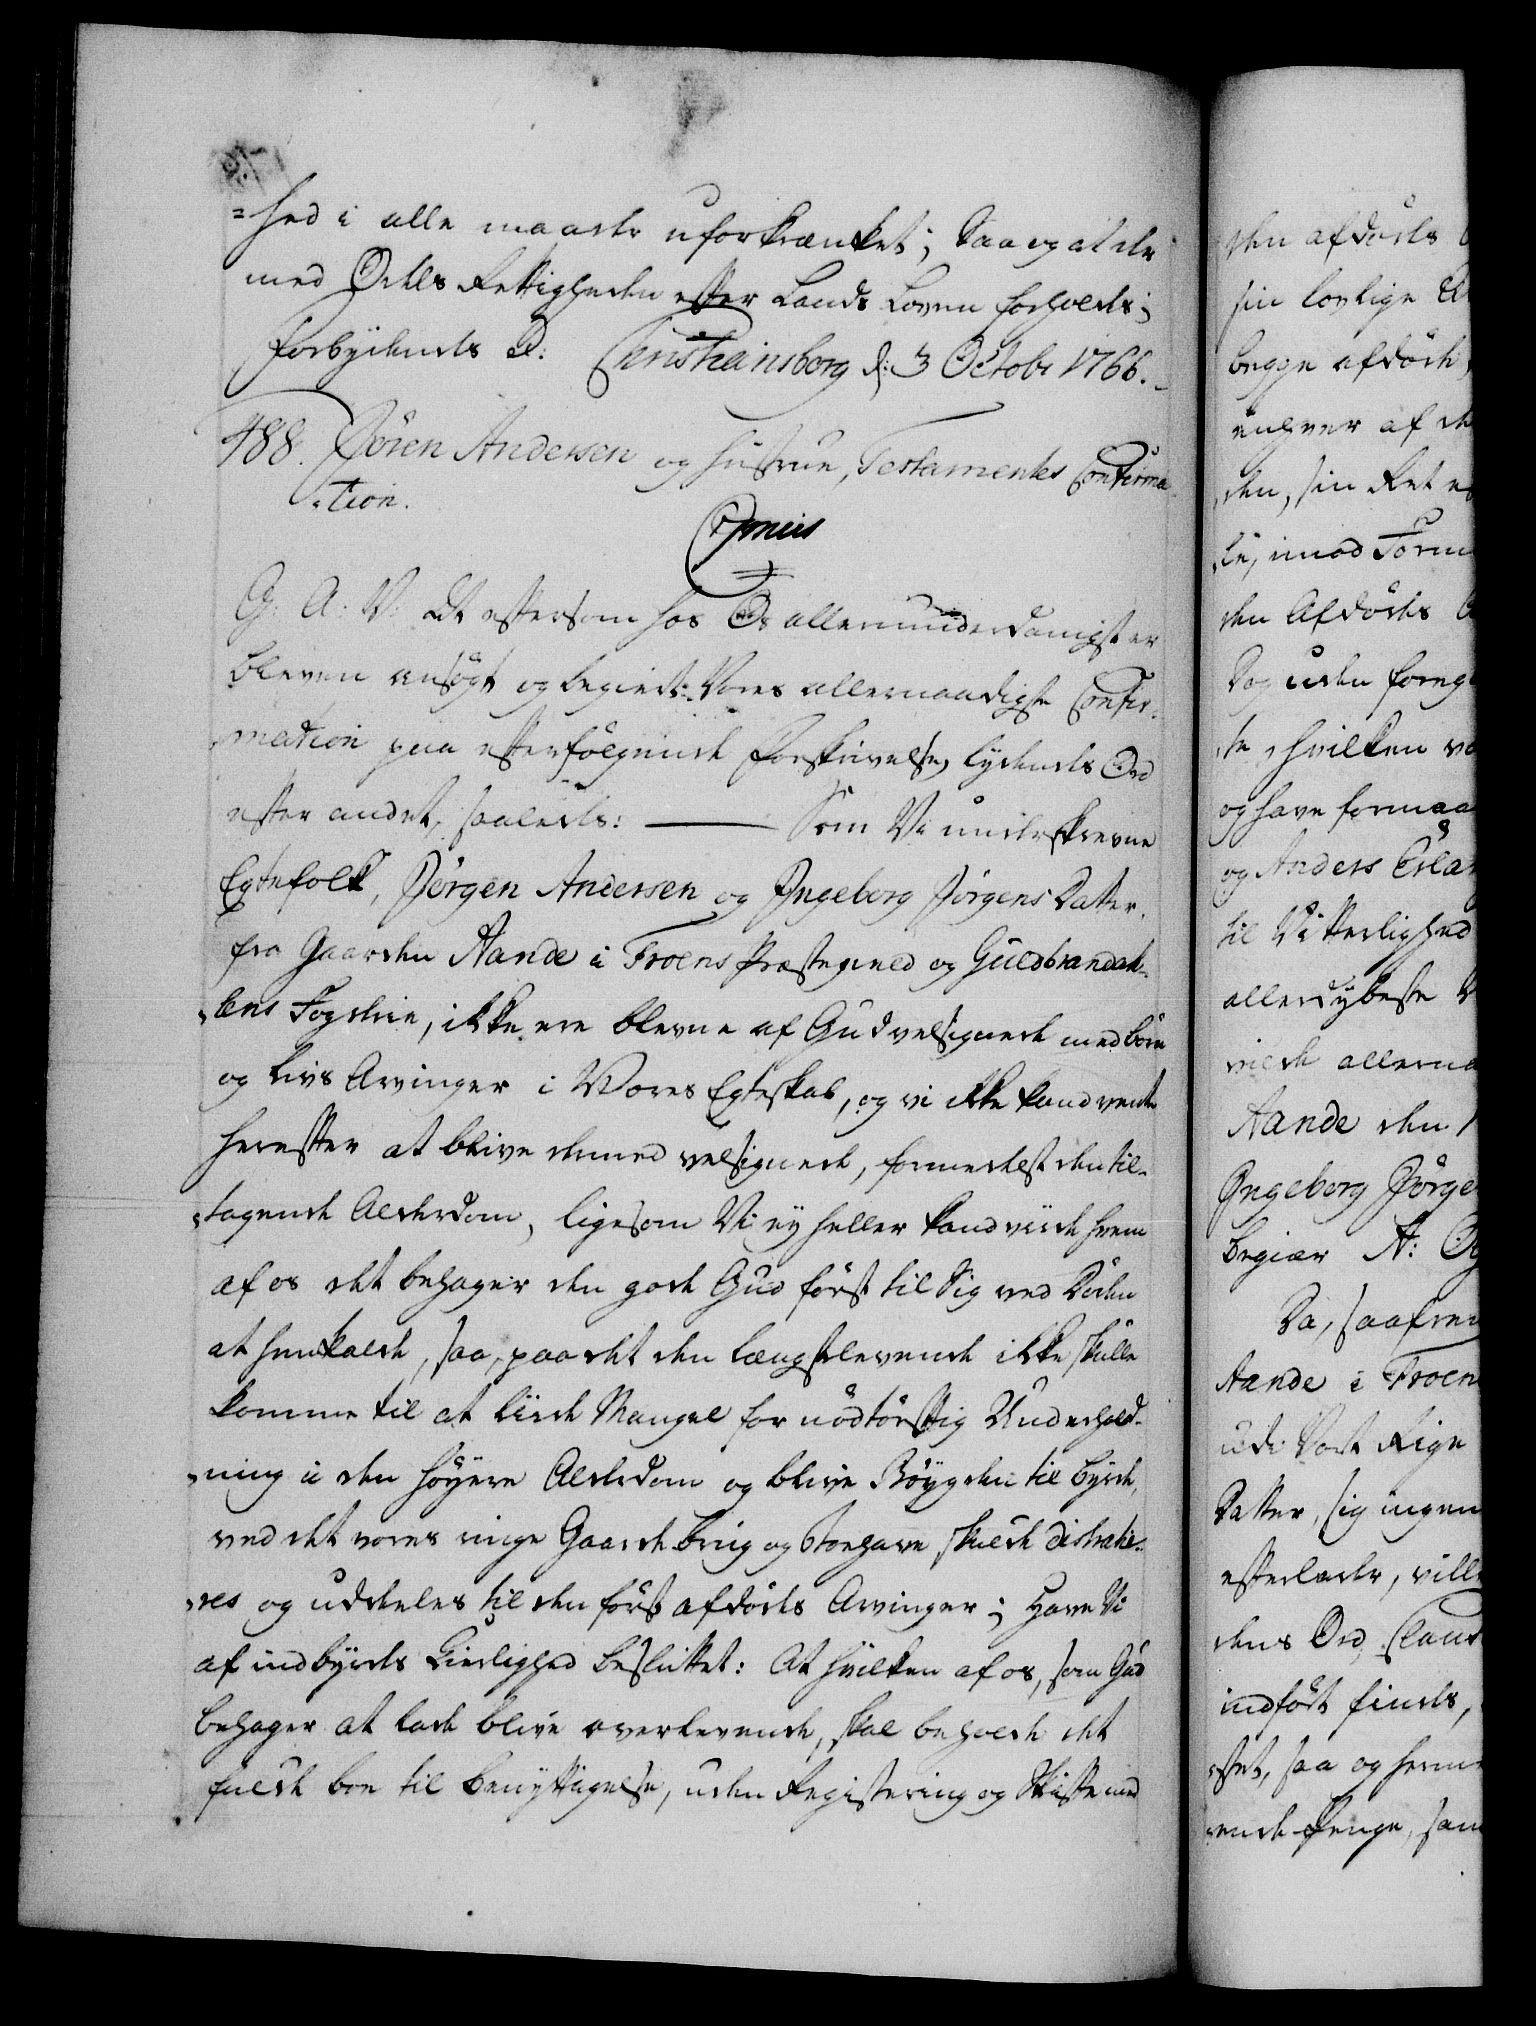 =hed i alle maader uforkrænket; Saa og at der
med Odels Rettigheden efter Lands Loven forholdes;
forbydendes &c: Christiansborg d: 3 Octobr 1766.
488. Jören Andersen og Hustrue, Testamentes Confirma-
-tion.
Gratis
G: A: V: At eftersom hos Os allerunderdanigst er
bleven ansögt og begiert: Vores allernaadigste Confir-
-mation paa efterfölgende Forskrivelse, lydendes Ord
efter andet, saaledes: ——— Som Vi underskrevne
Egtefolk, Jörgen Andersen og Ingeborg Jörgens Datter,
fra Gaarden Aande i Froens Præstegield og Guldbrandsda-
-lens Fogderie, ikke ere blevne af Gud velsignede med börn
og Livs Arvinger i Vores Egteskab, og vi ikke kand vente
herefter at blive dermed velsignede, formedelst den til-
-tagende Alderdom, ligesom Vi ey heller kand viide hvem
af os det behager den gode Gud först til Sig ved Döden
at henkalde, saa, paa det den længstlevende ikke skulle
komme til at liide Mangel for nödtörftig Underhold-
-ning i den höyere Alderdom og blive Böygden til byrde,
ved det vores ringe Gaarde brug og Boehave skulde distrahe-
-res og uddeeles til den först afdödes Arvinger; Have Vi
af indbyrdes Kierlighed besluttet: At hvilken af os, som Gud
behager at lade blive overlevende, skal beholde det
fulde boe til benyttigelse, uden Registering og Skifte med
den afdödes
sin lovlige
begge afdöde,
enhver af de
den, sin Ret
le, imod Form
den Afdödes
Dog uden foreg
te, hvilken
og have formaa
og Anders Erla
til Vitterlighed
allerdybeste
vilde allerna
Aande den 1
Ingeborg Jörge
begiær A:
Da, saafrem
Aande i Froen
udi Vort Rige
Datter, sig ingen
efterlader, ville
dens Ord, Claus
indfört findes,
-stet, saa og herme
-ende Penge, som